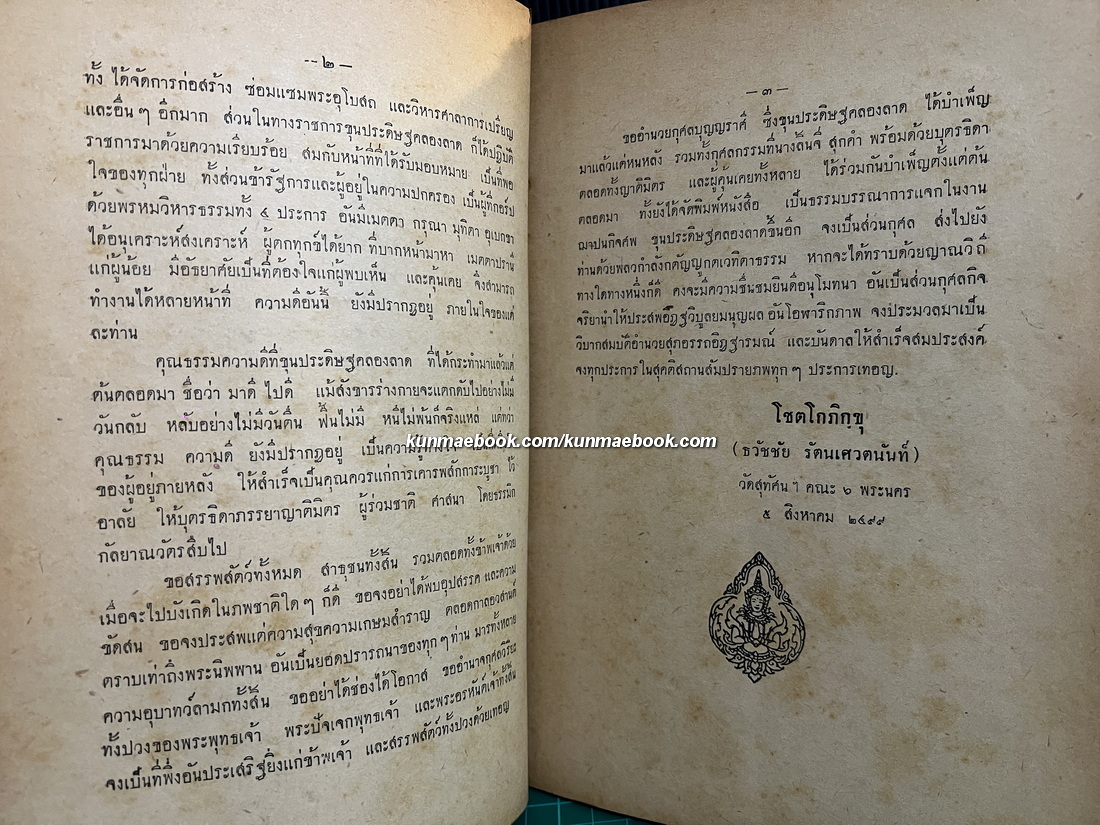 -- ๒ --
ทั้ง ได้จัดการก่อสร้าง ซ่อมแซมพระอุโบสถ และวิหารศาลาการเปรียญ
และอื่น ๆ อีกมาก ส่วนในทางราชการขุนประดิษฐคลองลาด ก็ได้ปฏิบัติ
ราชการมาด้วยความเรียบร้อย สมกับหน้าที่ที่ได้รับมอบหมาย เป็นที่พอ
ใจของทุกฝ่าย ทั้งส่วนข้ารัฐการและผู้อยู่ในความปกครอง เป็นผู้ที่กอร์ป
ด้วยพรหมวิหารธรรมทั้ง ๔ ประการ อันมีเมตตา กรุณา มุทิตา อุเบกขา
ได้อนุเคราะห์สงเคราะห์ ผู้ตกทุกข์ได้ยาก ที่บากหน้ามาหา เมตตาปรานี
แก่ผู้น้อย มีอัธยาศัยเป็นที่ต้องใจแก่ผู้พบเห็น และคุ้นเคย จึงสามารถ
ทำงานได้หลายหน้าที่ ความดีอันนี้ ยังมีปรากฏอยู่ ภายในใจของแต่
ละท่าน
คุณธรรมความดีที่ขุนประดิษฐคลองลาด ที่ได้กระทำมาแล้วแต่
ต้นตลอดมา ชื่อว่า มาดี ไปดี แม้สังขารร่างกายจะแตกดับไปอย่างไม่มี
วันกลับ หลับอย่างไม่มีวันตื่น ฟื้นไม่มี หนีไม่พ้นก็จริงแหล่ แต่ทว่า
คุณธรรม ความดี ยังมีปรากฏอยู่ เป็นความ
ของผู้อยู่ภายหลัง ให้สำเร็จเป็นคุณควรแก่การเคารพสักการะบูชา ไว้
อาลัย ให้บุตรธิดาภรรยาญาติมิตร ผู้ร่วมชาติ ศาสนา โดยธรรมิก
กัลยาณวัตรสืบไป
ขอสรรพสัตว์ทั้งหมด สาธุชนทั้งสิ้น รวมตลอดทั้งข้าพเจ้าด้วย
เมื่อจะไปบังเกิดในภพชาติใด ๆ ก็ดี ขอจงอย่าได้พบอุปสรรคและความ
ขัดสน ขอจงประสพแต่ความสุขความเกษมสำราญ ตลอดกาลอวสานต์
ตราบเท่าถึงพระนิพพาน อันเป็นยอดปรารถนาของทุก ๆ ท่าน มารทั้งหลาย
ความอุบาทว์ลามกทั้งสิ้น ขออย่าได้ช่องได้โอกาส ขออำนาจกุศลวิริยะ
ทั้งปวงของพระพุทธเจ้า พระปัจเจกพุทธเจ้า และพระอรหันต์เจ้าทั้งสิ้น
จงเป็นที่พึ่งอันประเสริฐยิ่งแก่ข้าพเจ้า และสรรพสัตว์ทั้งปวงด้วยเทอญ
-- ๓ --
ขออำนวยกุศลบุญญราศี ซึ่งขุนประดิษฐคลองลาด ได้บำเพ็ญ
มาแล้วแต่หนหลัง รวมทั้งกุศลกรรมที่นางลิ้นจี่ สุกคำ พร้อมด้วยบุตรธิดา
ตลอดทั้งญาติมิตร และผู้คุ้นเคยทั้งหลาย ได้ร่วมกันบำเพ็ญตั้งแต่ต้น
ตลอดมา ทั้งยังได้จัดพิมพ์หนังสือ เป็นธรรมบรรณาการแจกในงาน
ฌาปนกิจศพ ขุนประดิษฐคลองลาดขึ้นอีก จงเป็นส่วนกุศล ส่งไปยัง
ท่านด้วยพลวกำลังกตัญญูกตเวทิตาธรรม หากจะได้ทราบด้วยญาณวิถี
ทางใดทางหนึ่งก็ดี คงจะมีความชื่นชมยินดีอนุโมทนา อันเป็นส่วนกุศลกิจ
จริยานำให้ประสพอิฏฐวิบูลยมนุญผล อันโอฬาริกภาพ จงประมวลมาเป็น
วิบากสมบัติอำนวยสุภอรรถอิฏฐารมณ์ และบันดาลให้สำเร็จสมประสงค์
จงทุกประการในสุคติสถานสัมปรายภพทุก ๆ ประการเทอญ.
โชตโกภิกฺขุ
(ธวัชชัย รัตนเศวตนันท์)
วัดสุทัศน ฯ คณะ ๖ พระนคร
๕ สิงหาคม ๒๔๙๙
kunmaebook.com/kunmaebook.com